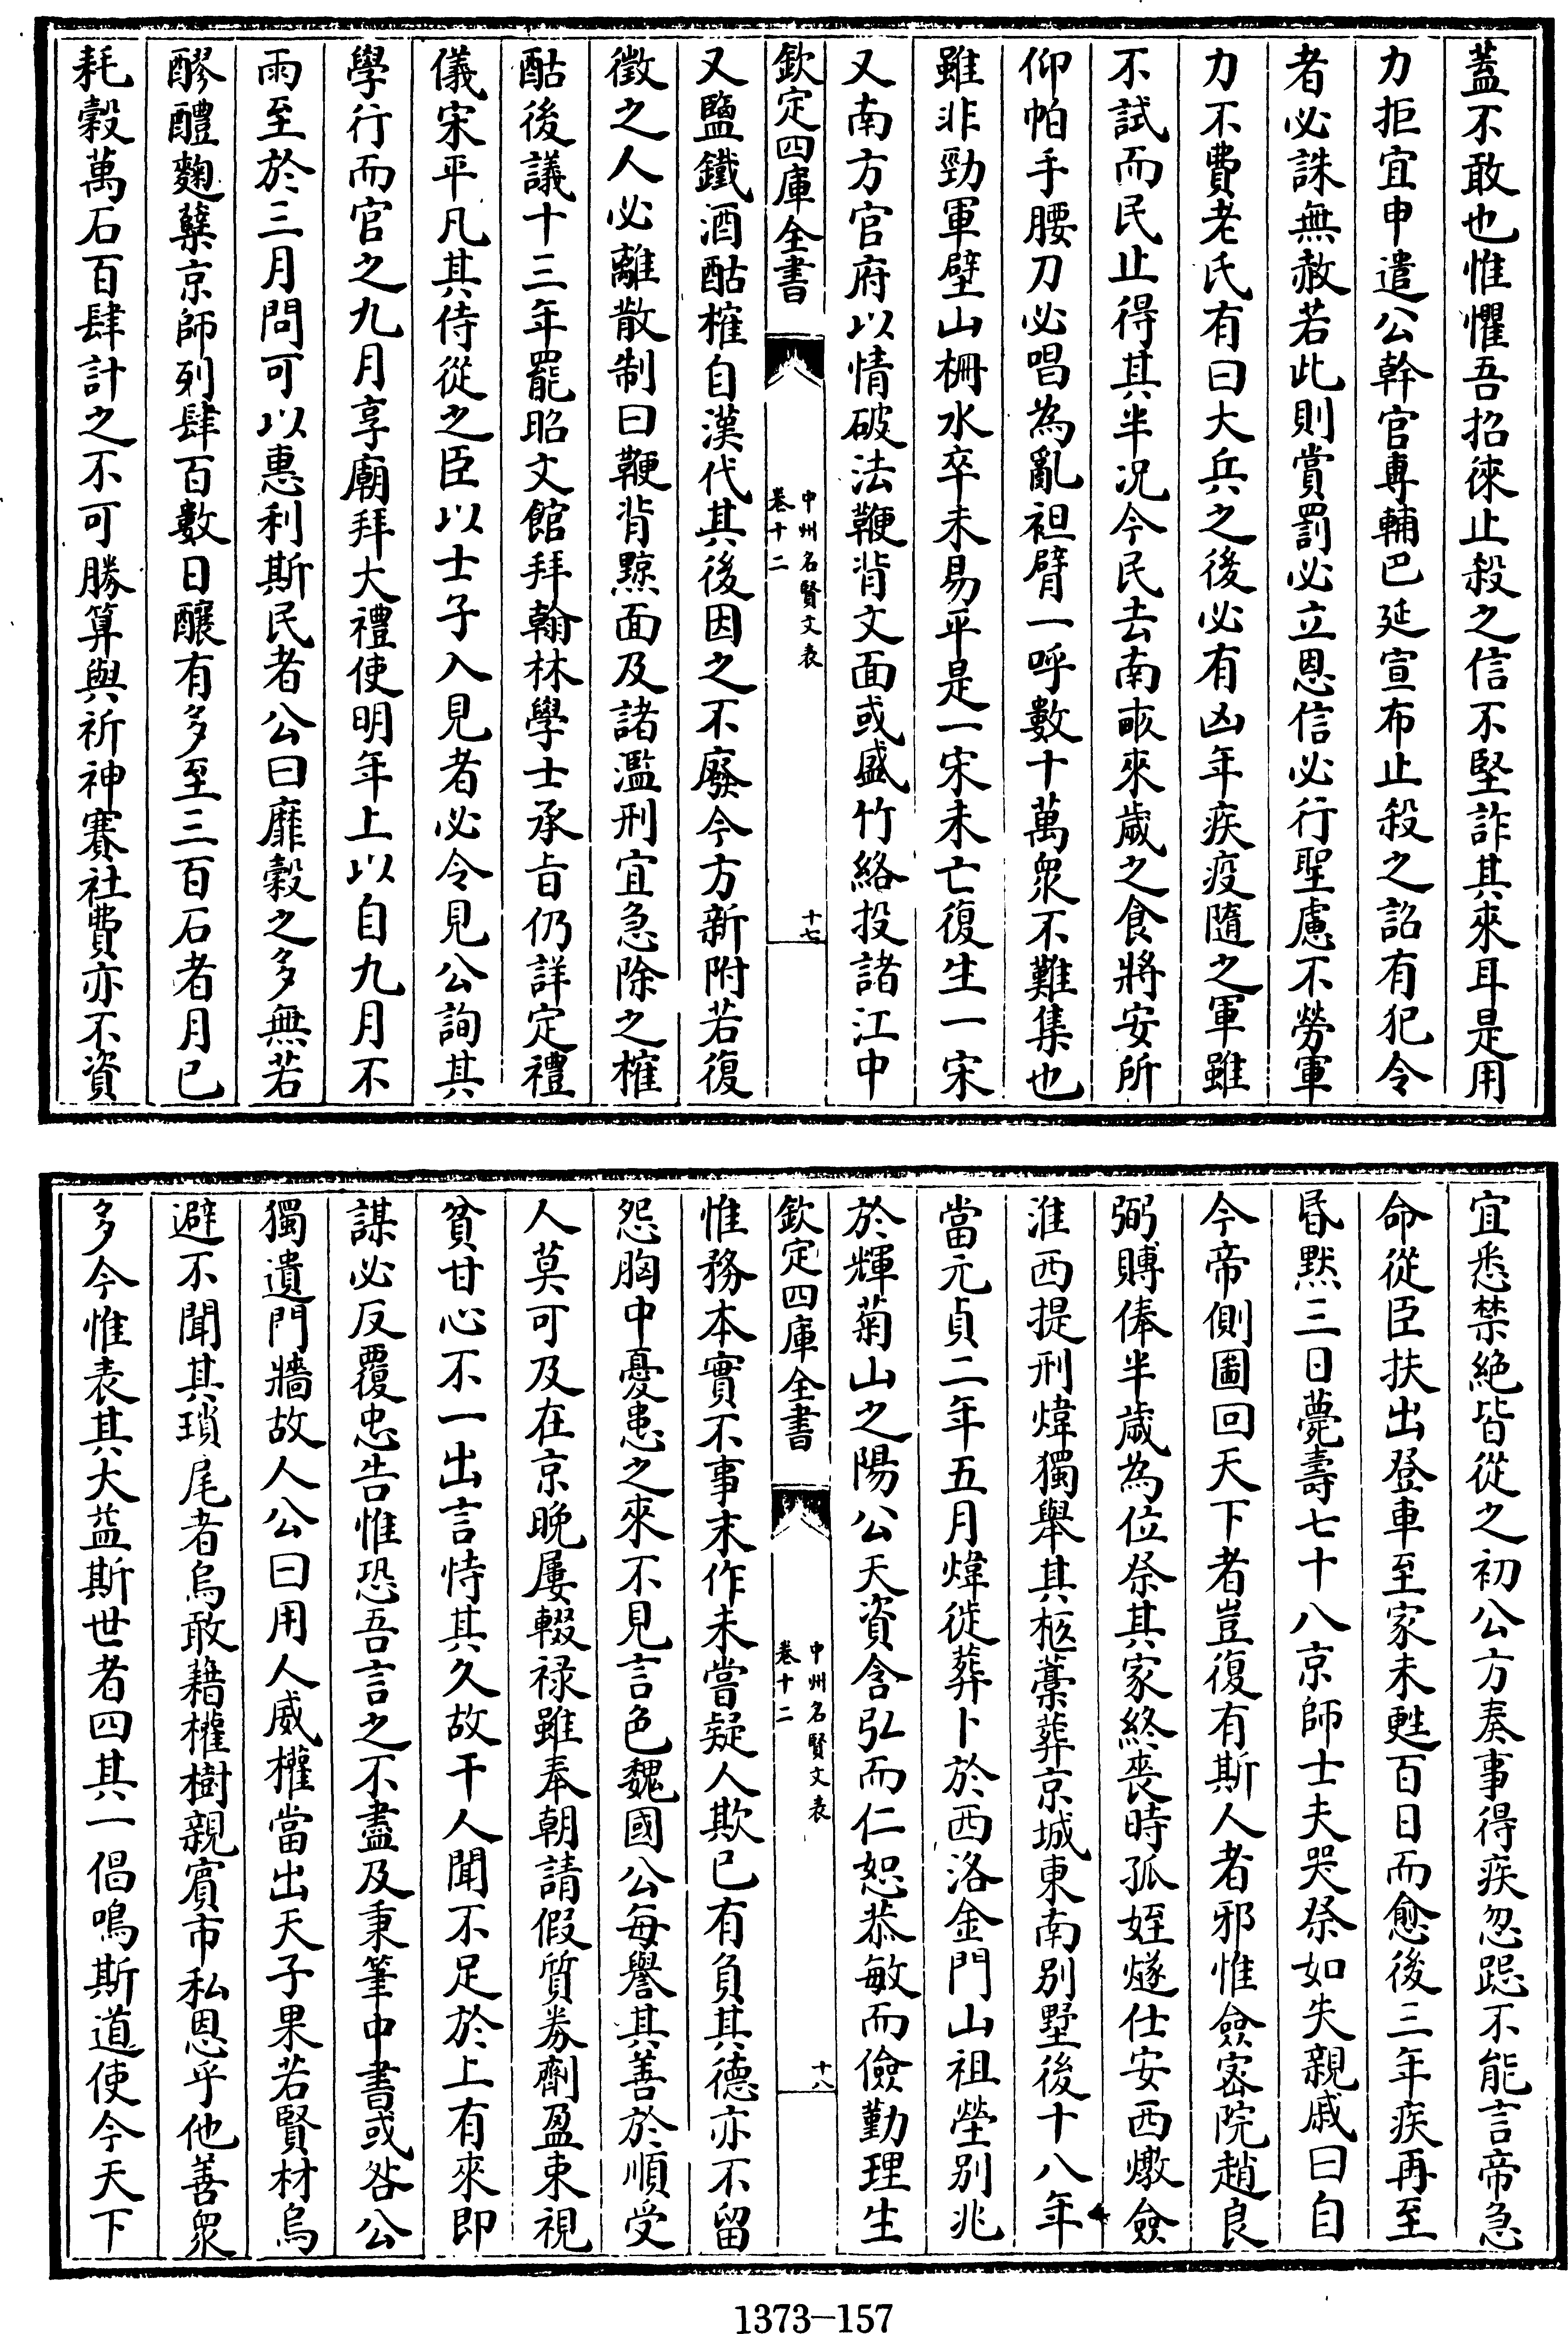 蓋不敢也惟懼吾招徠止殺之信不堅詐其來耳是用
力拒宜申遣公幹官專輔巴延宣布止殺之詔有犯令
者必誅無赦若此則賞罰必立恩信必行聖慮不勞軍
力不費老氏有曰大兵之後必有凶年疾疫隨之軍雖
不試而民止得其半况今民去南畝來歲之食將安所
仰帕手腰刀必唱為亂袒臂一呼數十萬衆不難集也
雖非勁軍壁山柵水卒未易平是一宋未亡復生一宋
又南方官府以情破法鞭背文面或盛竹絡投諸江中
欽定四庫全書
中州名賢文表
卷十二
十七
又鹽鐵酒酤榷自漢代其後因之不廢今方新附若復
徵之人必離散制曰鞭背黥面及諸濫刑宜急除之榷
酤後議十三年罷昭文館拜翰林學士承旨仍詳定禮
儀宋平凡其侍從之臣以士子入見者必令見公詢其
學行而官之九月享廟拜大禮使明年上以自九月不
雨至於三月問可以惠利斯民者公曰靡穀之多無若
醪醴麴蘖京師列肆百數日釀有多至三百石者月已
耗穀萬石百肆計之不可勝算與祈神賽社費亦不資
宜悉禁絶皆從之初公方奏事得疾忽跽不能言帝急
命從臣扶出登車至家未甦百日而愈後三年疾再至
昬黙三日薨壽七十八京師士夫哭祭如失親戚曰自
今帝側圖回天下者豈復有斯人者邪惟僉宻院趙良
弼賻俸半歲為位祭其家終喪時孤姪燧仕安西燉僉
淮西提刑煒獨舉其柩藁葬京城東南别墅後十八年
當元貞二年五月煒徙葬卜於西洛金門山祖塋别兆
於輝菊山之陽公天資含弘而仁恕恭敏而儉勤理生
欽定四庫全書
中州名賢文表
卷十二
十八
惟務本實不事末作未嘗疑人欺已有負其德亦不留
怨胸中憂患之來不見言色魏國公每譽其善於順受
人莫可及在京晚屢輟禄雖奉朝請假質劵劑盈束視
貧甘心不一出言恃其久故干人聞不足於上有來即
謀必反覆忠告惟恐吾言之不盡及秉筆中書或咎公
獨遺門牆故人公曰用人威權當出天子果若賢材烏
避不聞其瑣尾者烏敢藉權樹親賔市私恩乎他善衆
多今惟表其大益斯世者四其一倡鳴斯道使今天下
1373-157